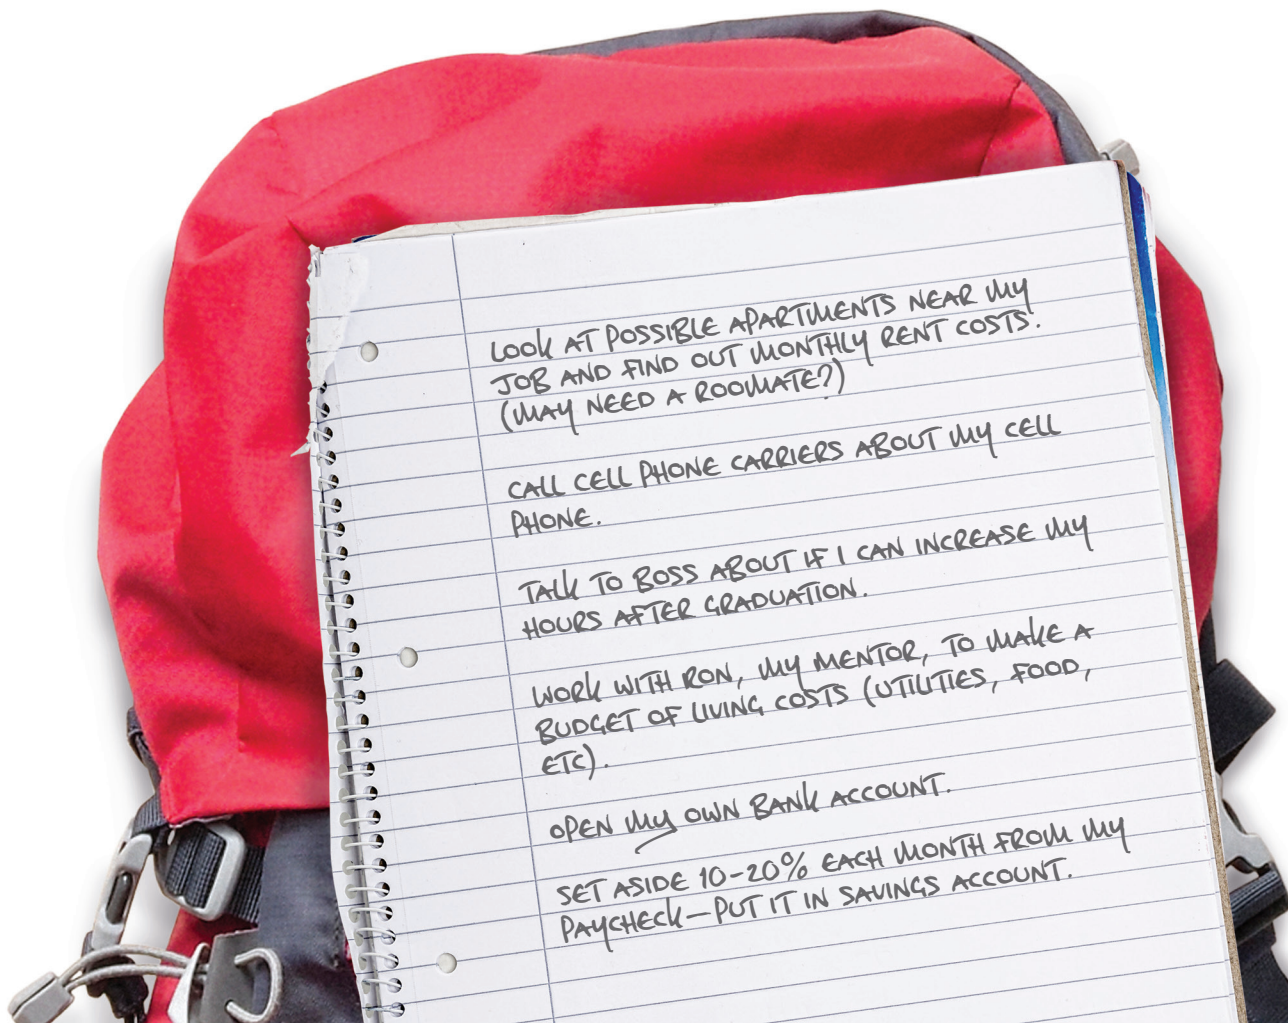 LOOK AT POSSIBLE APARTMENTS NEAR MY
JOB AND FIND OUT MONTHLY RENT COSTS.
(MAY NEED A ROOMATE?)
CALL CELL PHONE CARRIERS ABOUT MY CELL
PHONE.
TALK TO BOSS ABOUT IF I CAN INCREASE MY
HOURS AFTER GRADUATION.
WORK WITH RON, MY MENTOR, TO MAKE A
BUDGET OF LIVING COSTS (UTILITIES, FOOD,
ETC).
OPEN MY OWN BANK ACCOUNT.
SET ASIDE 10-20% EACH MONTH FROM MY
PAYCHECK—PUT IT IN SAVINGS ACCOUNT.